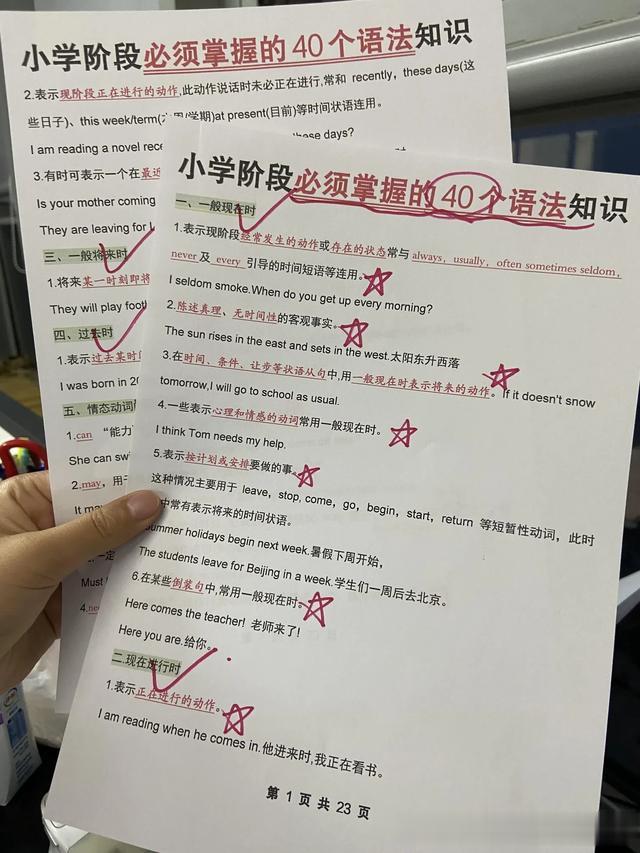 小学阶段必须掌握的40个语法知识
2.表示现阶段正在进行的动作,此动作说话时未必正在进行,常和 recently, these days(这
些日子)、this week/term(本周/学期)at present(目前)等时间状语连用。
I am reading a novel rece these days?
3.有时可表示一个在最近
Is your mother coming
They are leaving for
三、一般将来时
1.将来某一时刻即将
They will play foot
四、过去时
1.表示过去某时
I was born in 20
五、情态动词
1.can “能力
She can swi
2.may,用于
It may
一定
Must
4.nee
小学阶段必须掌握的40个语法知识
一、一般现在时
1.表示现阶段经常发生的动作或存在的状态常与 always, usually, often sometimes seldom,
never 及 every 引导的时间短语等连用。
I seldom smoke.When do you get up every morning?
2.陈述真理、无时间性的客观事实。
The sun rises in the east and sets in the west.太阳东升西落
3.在时间、条件、让步等状语从句中,用一般现在时表示将来的动作。If it doesn't snow
tomorrow,I will go to school as usual.
4.一些表示心理和情感的动词常用一般现在时。
I think Tom needs my help.
5.表示按计划或安排要做的事。
这种情况主要用于 leave, stop, come, go, begin, start, return 等短暂性动词, 此时
中常有表示将来的时间状语。
ummer holidays begin next week.暑假下周开始,
The students leave for Beijing in a week.学生们一周后去北京。
6.在某些倒装句中,常用一般现在时。
Here comes the teacher! 老师来了!
Here you are.给你。
二.现在进行时
1.表示正在进行的动作。
I am reading when he comes in.他进来时,我正在看书。
第 1 页 共 23 页